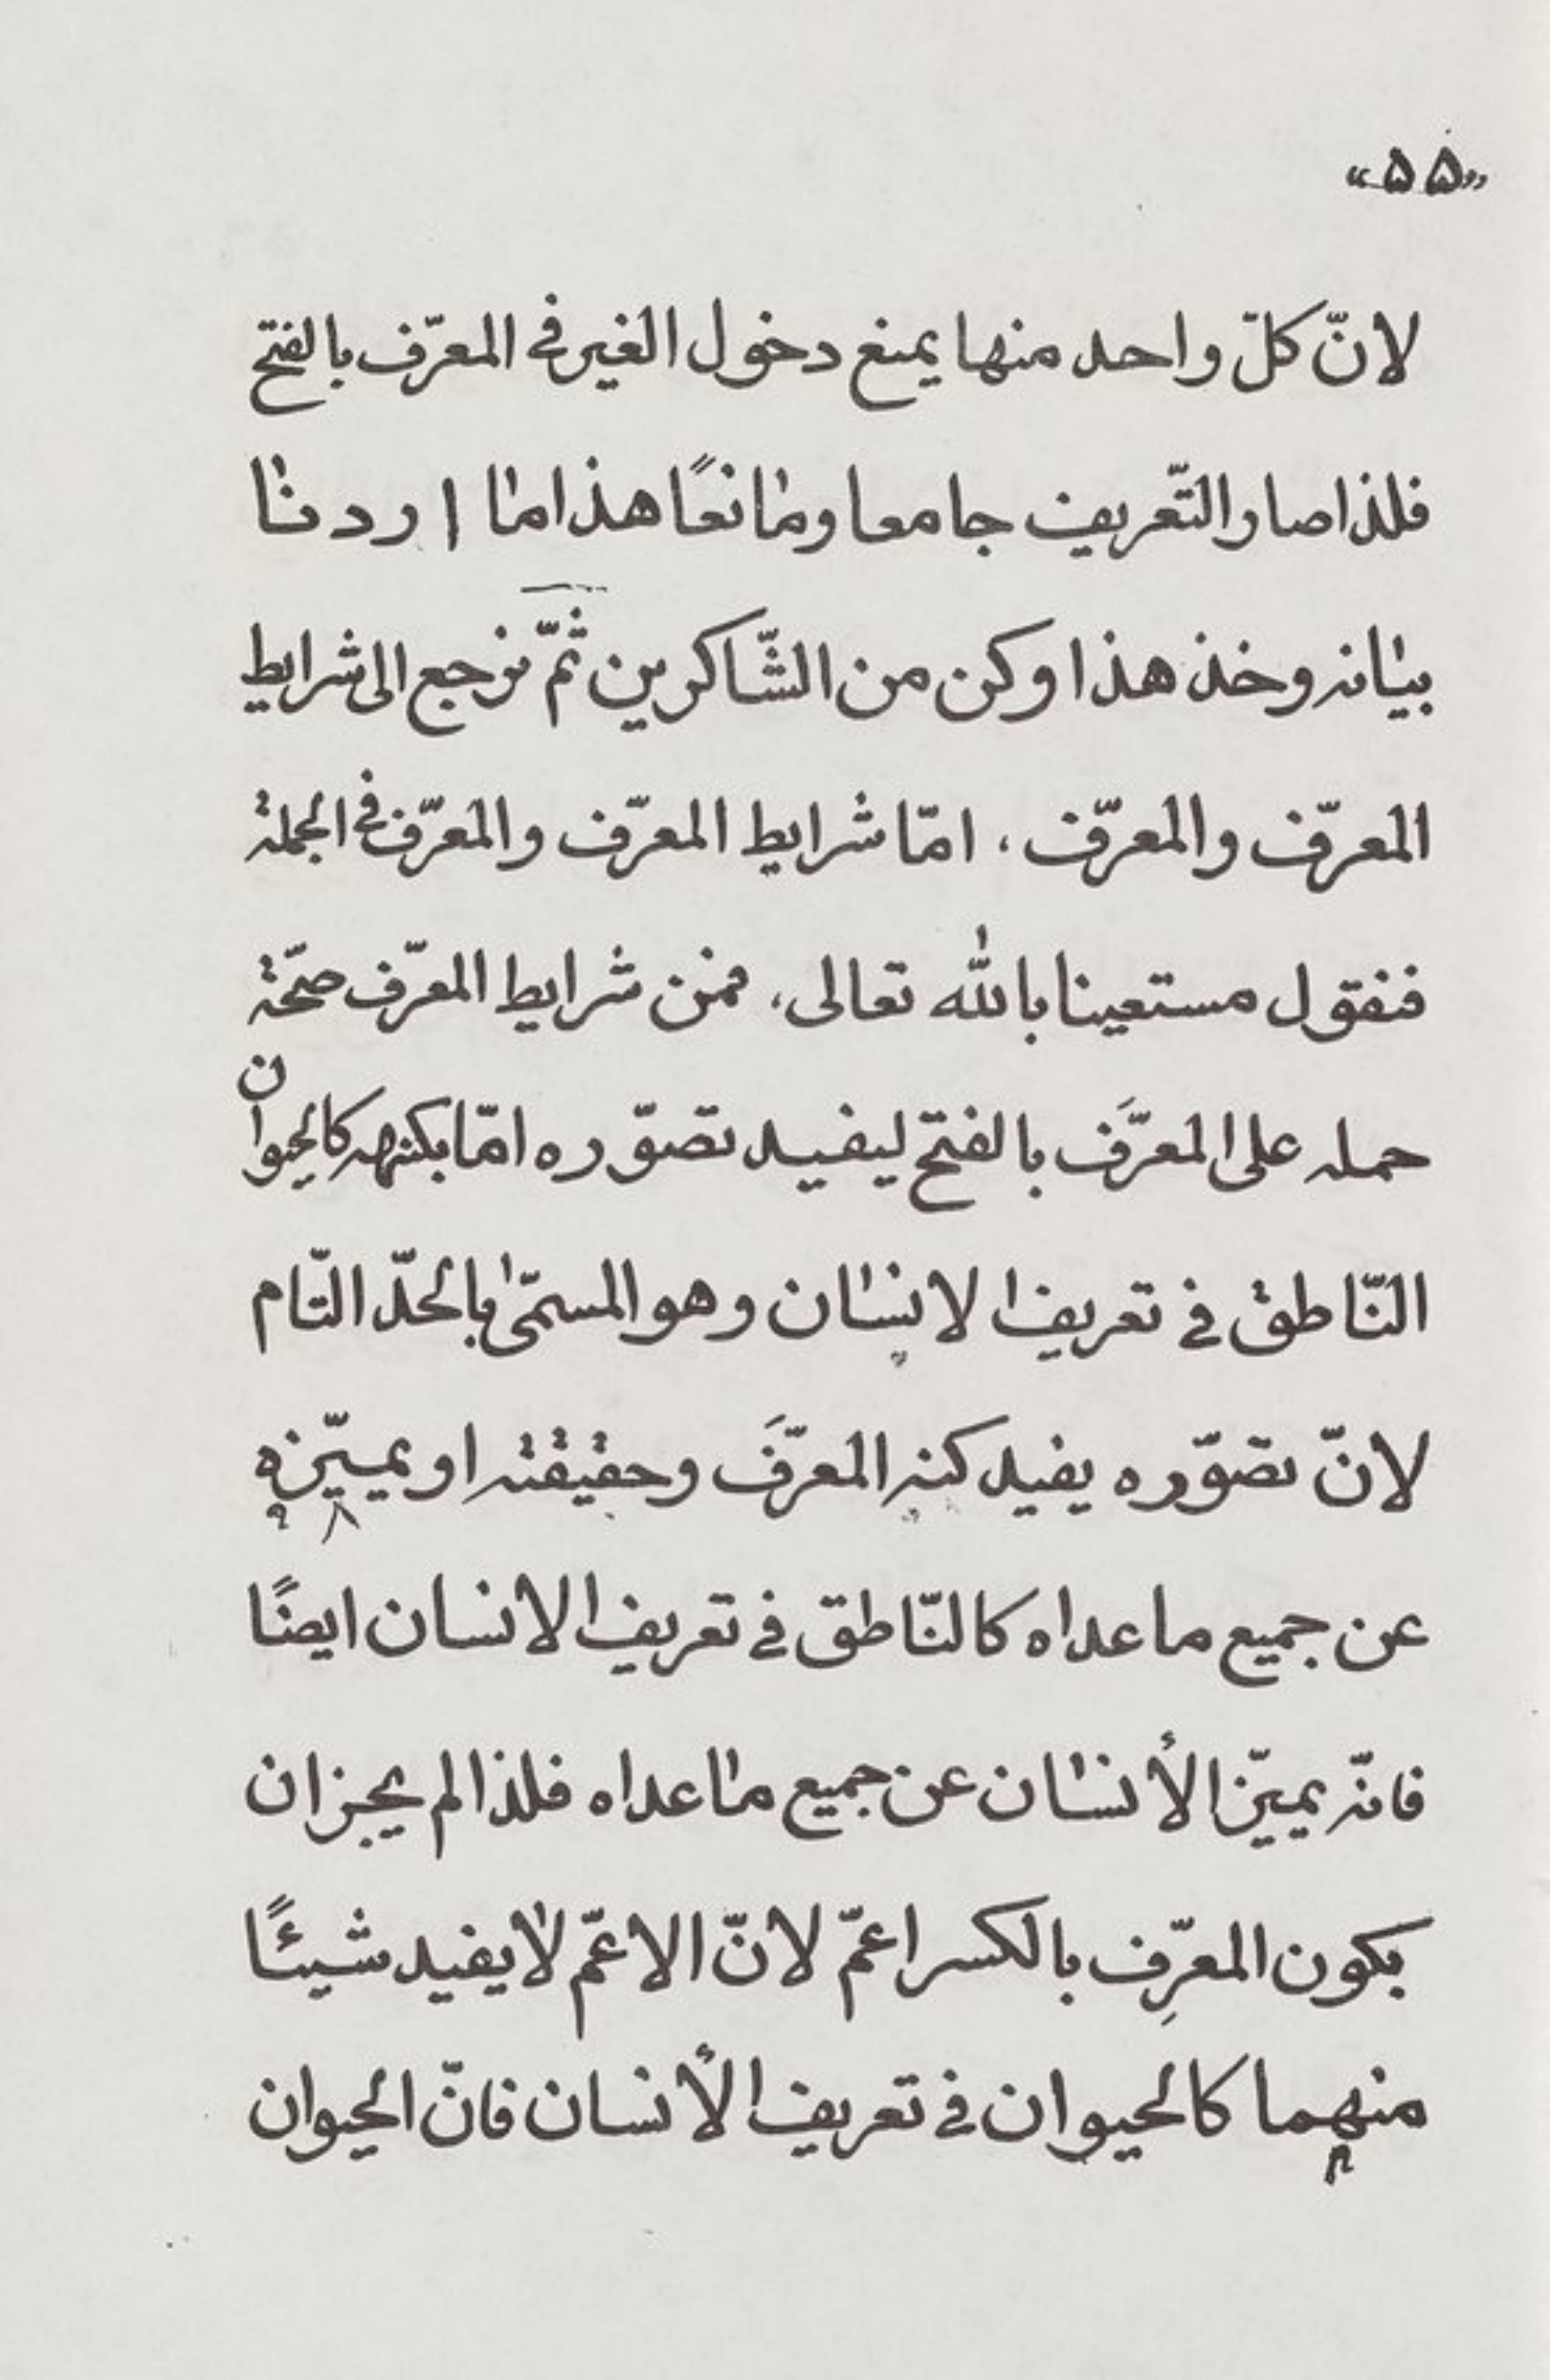 «۵۵»
لانّ كلّ واحد منها يمنع دخول الغير فى المعرّف بالفتح
فلذا صار التّعريف جامعا ومانعًا هذا ما اردنا
بيانه وخذ هذا وكن من الشّاكرين ثمّ نرجع الى شرايط
المعرّف والمعرّف، امّا شرايط المعرّف والمعرّف فى الجملة
فنقول مستعينا بالله تعالى، فمن شرايط المعرّف صحّة
حمله على المعرَّف بالفتح ليفيد تصوّره امّا بكنهه كالحيوان
النّاطق فى تعريف الانسان وهو المسمّى بالحدّ التّام
لانّ تصوّره يفيد كنه المعرَّف وحقيقته او يميّزه
عن جميع ما عداه كالنّاطق فى تعريف الانسان ايضًا
فانّه يميّز الأنسان عن جميع ما عداه فلذا لم يجز ان
يكون المعرِّف بالكسر اعمّ لانّ الاعمّ لا يفيد شيئًا
منهما كالحيوان فى تعريف الأنسان فانّ الحيوان